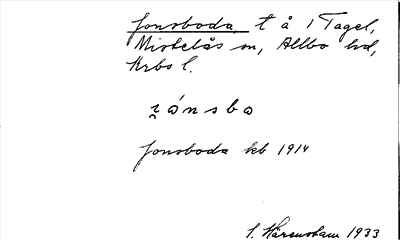 Jonsboda t å i Tagel,
Mistelås sn, Allbo hd,
Krbs l.
ɿånsba
Jonsboda kb 1914
S. Kärenstam 1933